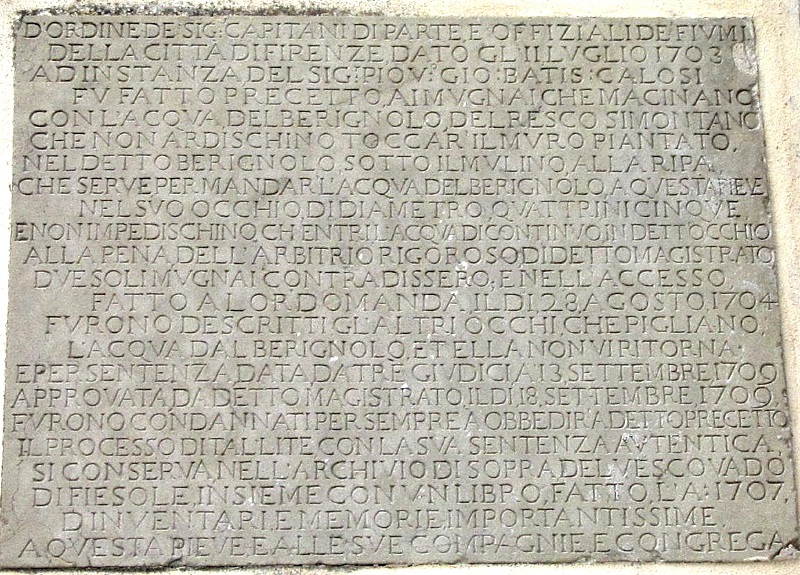 D'ORDINE DE SIG: CAPITANI DI PARTE E OFFIZIALI DE FIUMI
DELLA CITTÀ DI FIRENZE, DATO GL' 11 LUGLIO 1703
AD INSTANZA DEL SIG: PIOV: GIO: BATIS: CALOSI
FV FATTO PRECETTO, AI MVGNAI CHE MACINANO
CON L'ACQVA, DEL BERIGNOLO, DEL RESCO SIMONTANO
CHE NON ARDISCHINO TOCCAR IL MVRO PIANTATO,
NEL DETTO BERIGNOLO, SOTTO IL MVLINO, ALLA RIPA
CHE SERVE PER MANDAR L'ACQVA DEL BERIGNOLO, A QVESTA PIEVE
NEL SVO OCCHIO, DI DIAMETRO, QVATTRINI CINQVE
E NON IMPEDISCHINO CH'ENTRI L'ACQVA DI CONTINVO, IN DETT'OCCHIO
ALLA PENA DELL'ARBITRIO RIGOROSO DI DETTO MAGISTRATO
DVE SOLI MVGNAI CONTRADISSERO, E NELL'ACCESSO
FATTO A LOR DOMANDA, IL DI 28, AGOSTO, 1704
FVRONO DESCRITTI GL'ALTRI OCCHI, CHE PIGLIANO,
L'ACQVA DAL BERIGNOLO, ET ELLA NON VI RITORNA
E PER SENTENZA, DATA DA TRE GIVDICI A 13, SETTEMBRE, 1709
APPROVATA, DA DETTO MAGISTRATO, IL DI 18, SETTEMBRE 1709,
FVRONO CONDANNATI PER SEMPRE A OBBEDIR A DETTO PRECETTO
IL PROCESSO DI TAL LITE CON LA SVA SENTENZA AVTENTICA,
SI CONSERVA, NELL'ARCHIVIO DI SOPRA DEL VESCOVADO
DI FIESOLE, INSIEME CON VN LIBRO, FATTO, L'A: 1707,
D'INVENTARI, E MEMORIE, IMPORTANTISSIME,
A QVESTA PIEVE, E ALLE SVE COMPAGNIE E CONGREGA